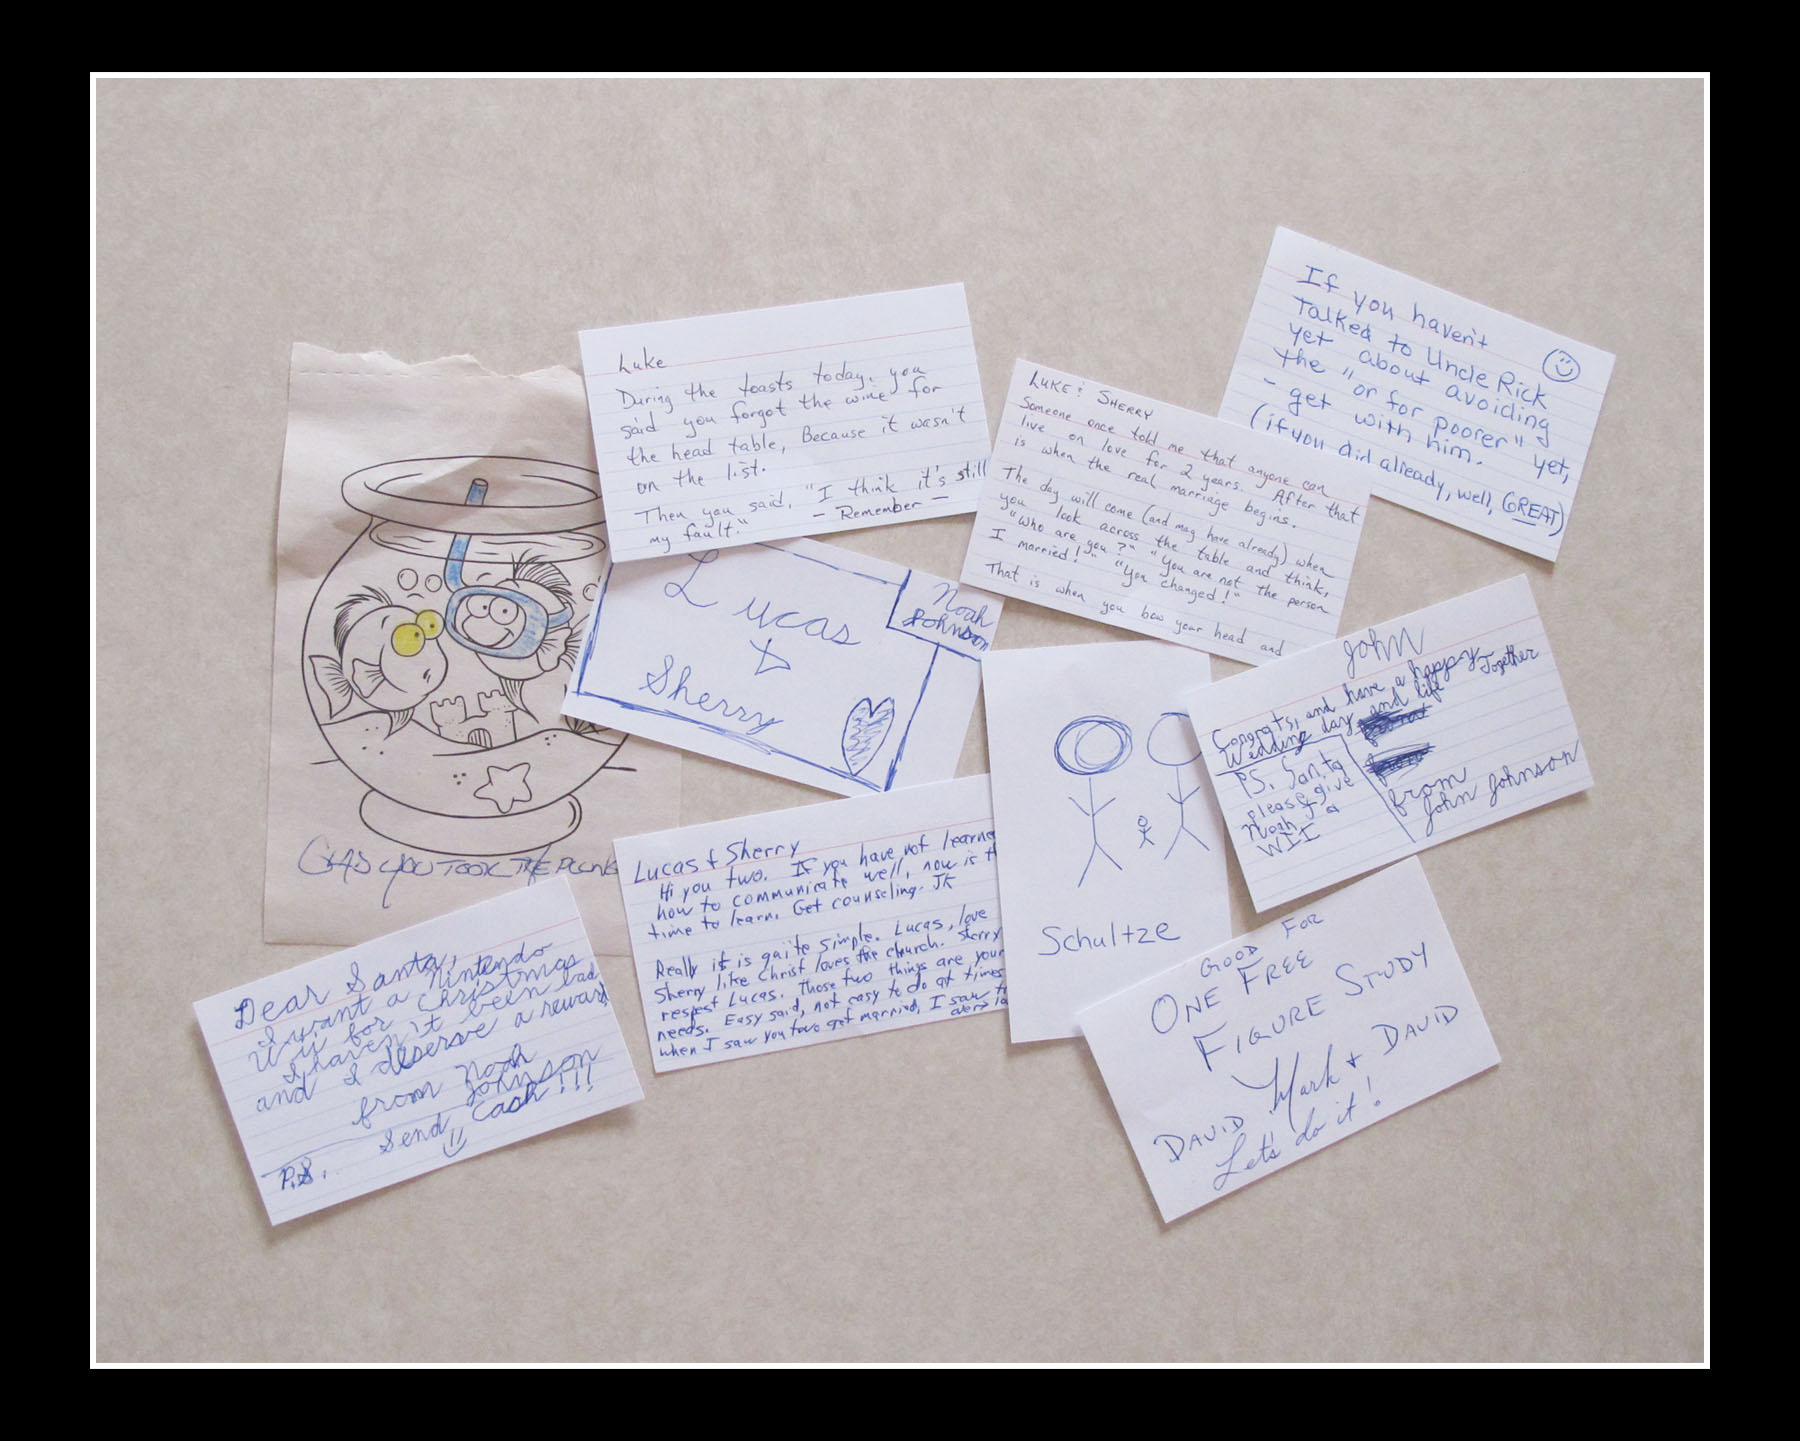 GLAD YOU TOOK THE PLUNG
Luke
During the toasts today, you
said you forgot the wine for
the head table, Because it wasn't
on the list.
Then you said, "I think it's still
my fault." - Remember -
LUKE & SHERRY
Someone once told me that anyone can
live on love for 2 years. After that
is when the real marriage begins.
The day will come (and may have already) when
you look across the table and think,
"Who are you?" "You are not the person
I married!" "You changed!"
That is when you bow your head and
If you haven't
Talked to Uncle Rick
yet about avoiding
the "or for poorer" yet,
- get with him.
(if you did already, well, GREAT)
Lucas
&
Sherry
Noah
Johnson
John
Congrats, and have a happy Together
Wedding day and life
P.S. Santa
please give
Noah a
WII
from
John Johnson
Lucas & Sherry
Hi you two. If you have not learne
how to communicate well, now is t
time to learn. Get counseling. JK
Really it is quite simple. Lucas, love
Sherry like Christ loves the church. Sherry
respest Lucas. Those two things are your
needs. Easy said, not easy to do at times
when I saw you two get married, I saw
Schultze
Dear Santa,
I want a Nintendo
Wii for Christmas
I haven't been bad
and I deserve a reward
from Noah
Johnson
P.S. Send Cash!!!
GOOD FOR
ONE FREE
FIGURE STUDY
DAVID Mark & DAVID
Let's do it!